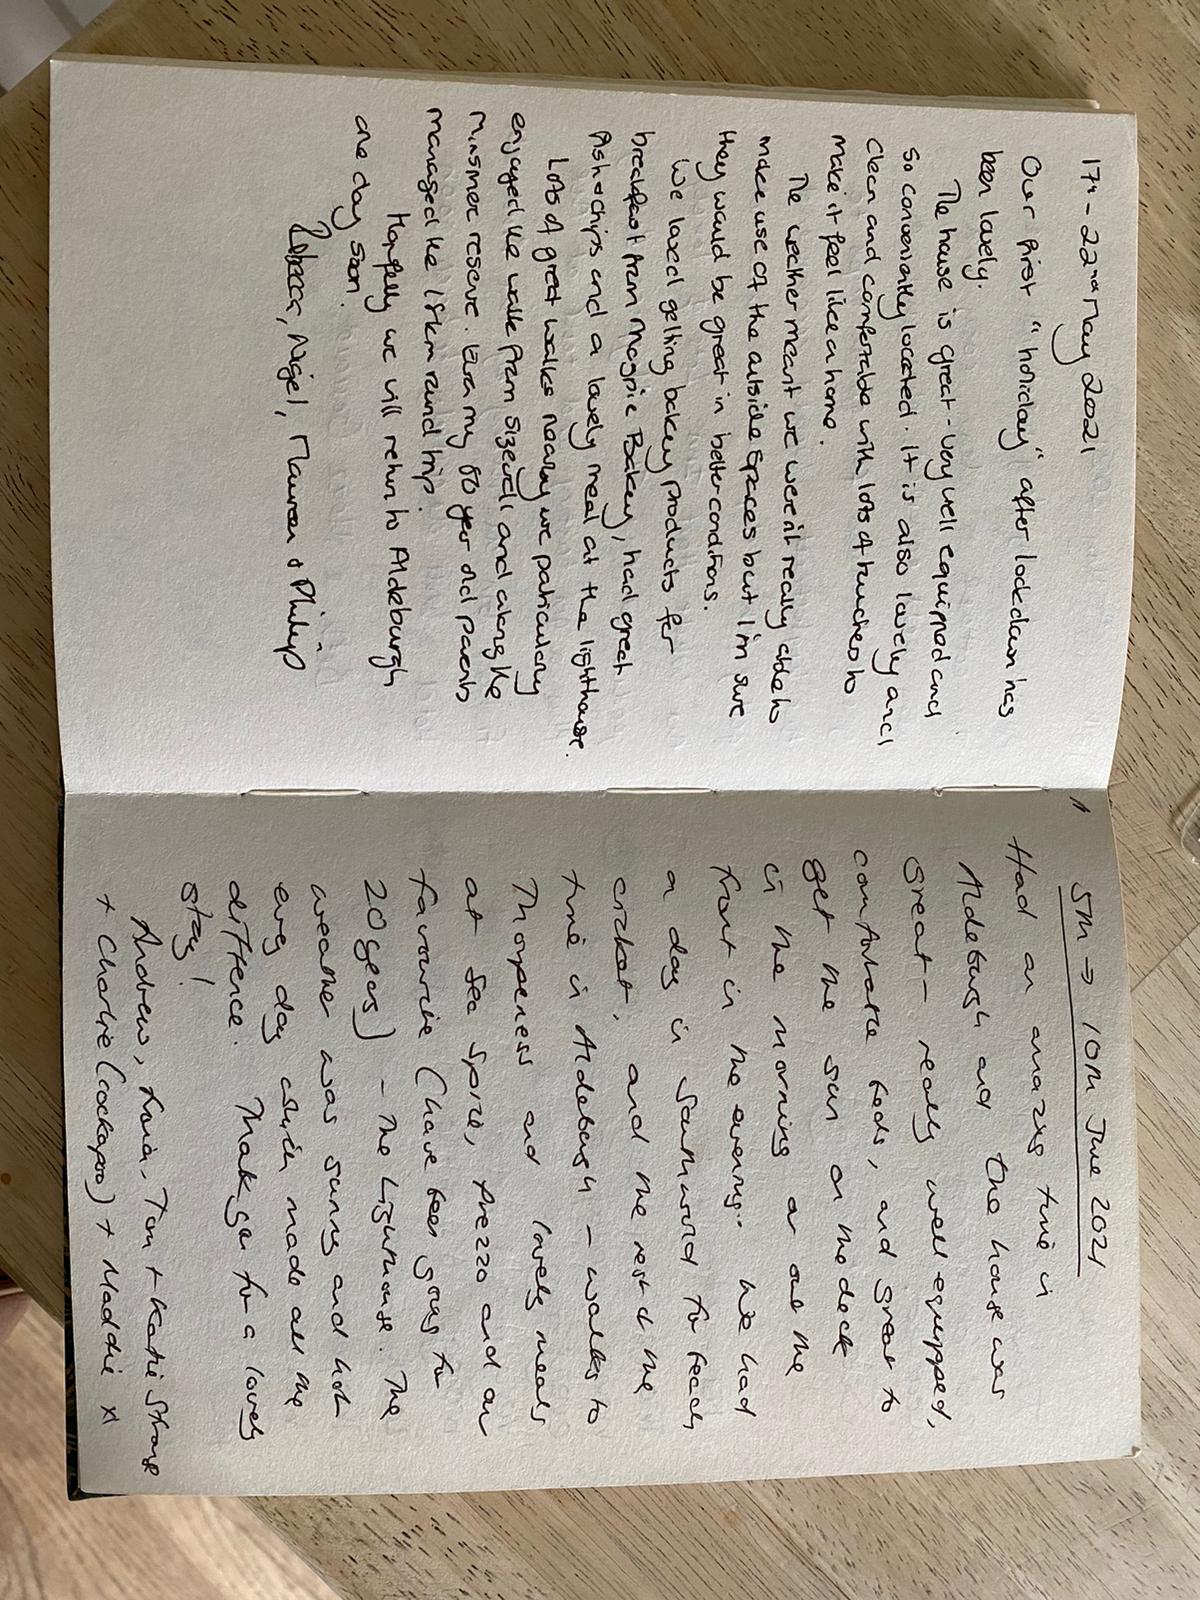 17th - 22nd May 2021
Our first "holiday" after lockdown has
been lovely.
The house is great - very well equipped and
so conveniently located. It is also lovely and
clean and comfortable with lots of touches to
make it feel like a home.
The weather meant we weren't really able to
make use of the outside spaces but I'm sure
they would be great in better conditions.
We loved getting bakery products for
breakfast from Magpie Bakery, had great
fish & chips and a lovely meal at the lighthouse.
Lots of great walks nearby we particularly
enjoyed the walk from Sizewell and along the
minsmer reserve. Even my 80 year old parents
managed the 15km round trip.
Hopefully we will return to Aldeburgh
one day soon.
Rebecca, Nigel, Maureen & Philip
5th → 10th June 2021
Had an amazing time in
Aldeburgh and the house was
great - really well equipped,
comfortable beds, and great to
get the sun on the deck
in the morning or out the
front in the evening. We had
a day in Southwold for beach
cricket, and the rest of the
time in Aldeburgh - walks to
Thorpeness and lovely meals
at Sea Spice, Prezzo and our
favourite (have been going for
20 years) - The Lighthouse. The
weather was sunny and hot
every day which made all the
difference. Thank you for a lovely
stay!
Andrew, Tom + Katie
+ Charlie (cockapoo) + Maddie x